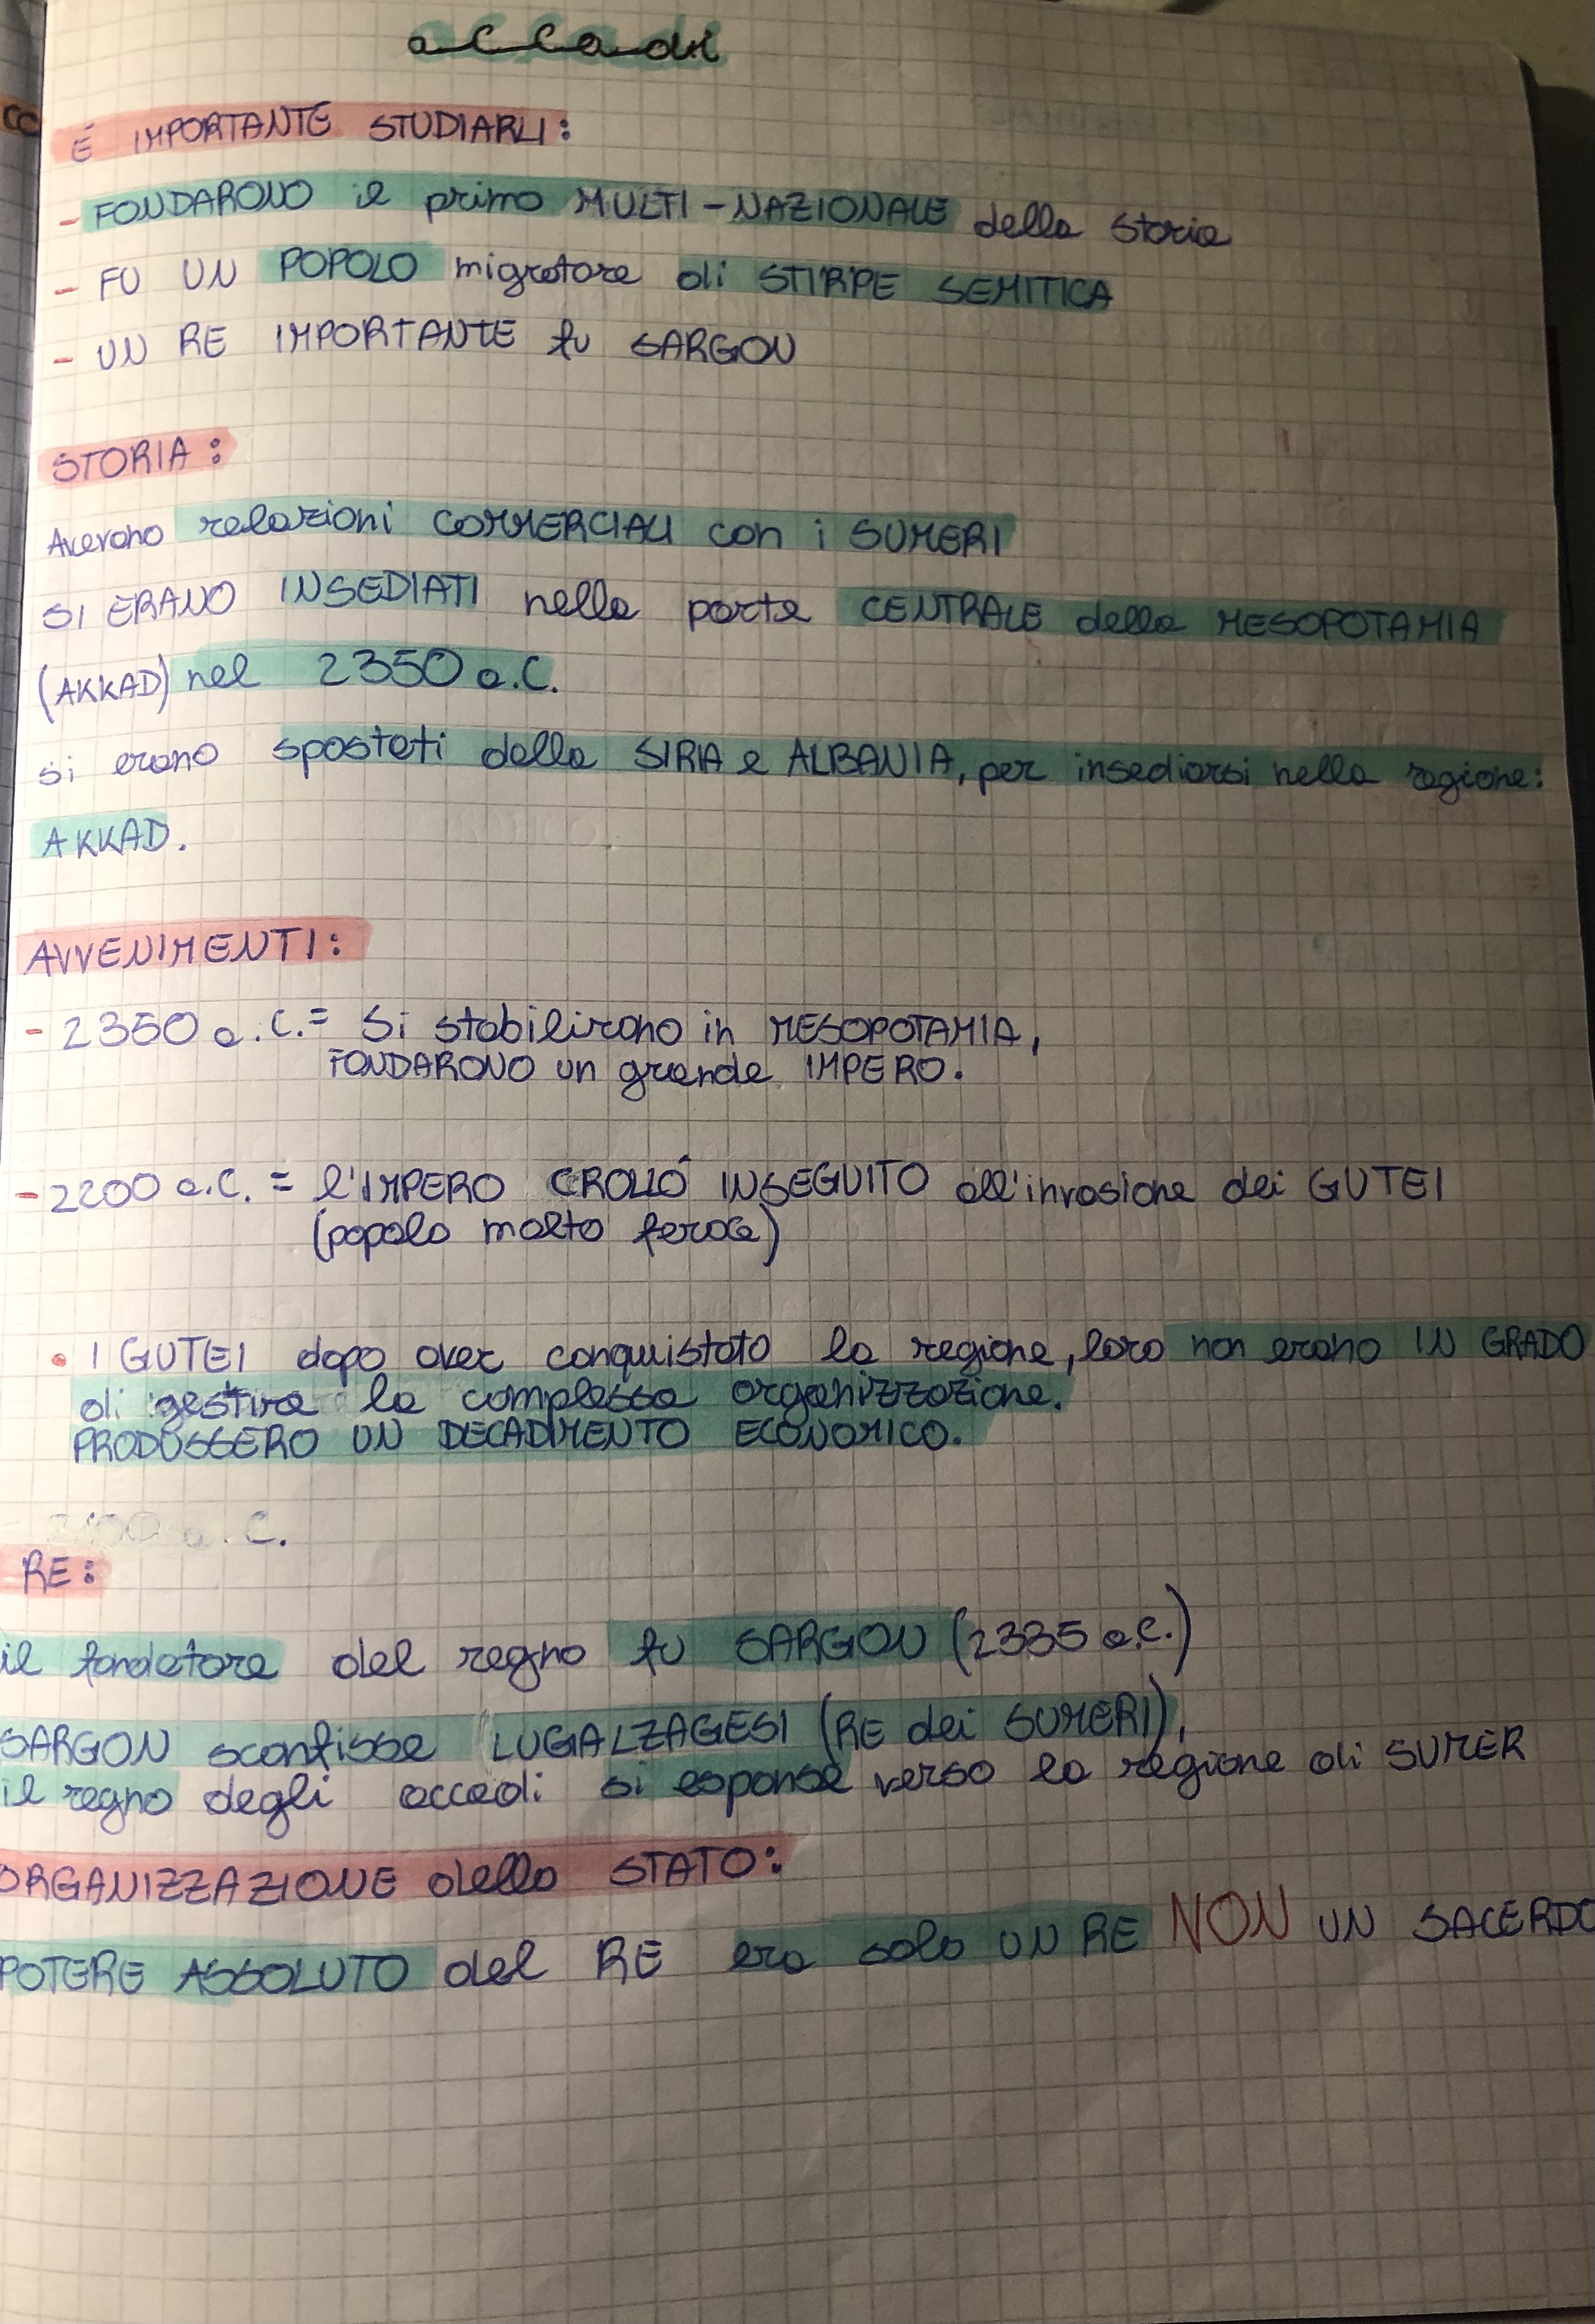 accadi
CC
É IMPORTANTE STUDIARLI:
- FONDARONO il primo MULTI-NAZIONALE della storia
- FU UN POPOLO migratore di STIRPE SEMITICA
- UN RE IMPORTANTE fu SARGON
STORIA:
Avevano relazioni COMMERCIALI con i SUMERI
SI ERANO INSEDIATI nella parte CENTRALE della MESOPOTAMIA
(AKKAD) nel 2350 a.C.
si erano spostati dalla SIRIA e ALBANIA, per insediarsi nella regione:
AKKAD.
AVVENIMENTI:
- 2350 a.C. = Si stabilirono in MESOPOTAMIA,
FONDARONO un grande IMPERO.
- 2200 a.C. = l'IMPERO CROLLÓ INSEGUITO all'invasione dei GUTEI
(popolo molto feroce)
• I GUTEI dopo aver conquistato la regione, loro non erano IN GRADO
di gestire la complessa organizzazione.
PRODUSSERO UN DECADIMENTO ECONOMICO.
a.C.
RE:
il fondatore del regno fu SARGON (2335 a.C.)
SARGON sconfisse LUGALZAGESI (RE dei SUMERI),
il regno degli accadi si espanse verso la regione di SUMER
ORGANIZZAZIONE dello STATO:
POTERE ASSOLUTO del RE era solo UN RE NON UN SACERDO